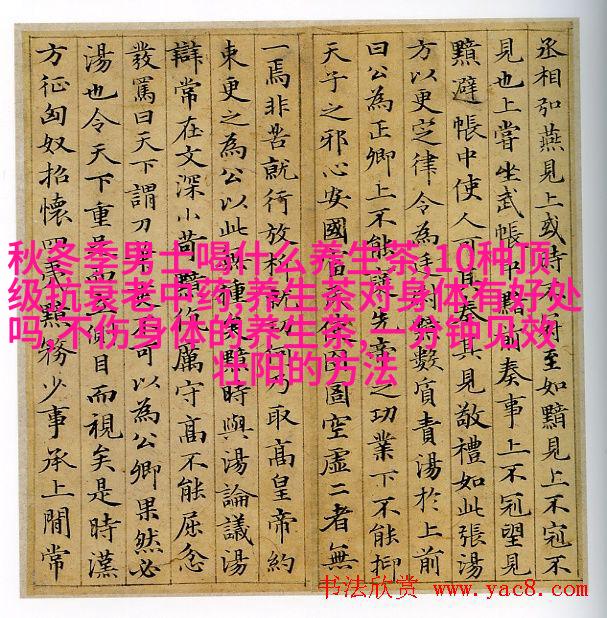 丞相弘燕見上或時至如黯見上不冠不
見也上嘗坐武帳中黯前奏事上不冠望見
黯避帳中使人可其奏其見敬禮如此張湯
方以更定律令為廷尉黯數質責湯於上前
曰公為正卿上不能襃先帝之功業下不能抑
天子之邪心安國富民使囹圄空虛二者無
一焉非苦就行放析就功何乃取高皇帝約
束更之為公以此無種矣黯時與湯論議湯
辯常在文深小苛黯伉厲守高不能屈忿
發罵曰天下謂刀筆吏不可以為公卿果然必
湯也令天下重足而立側目而視矣是時漢
方征匈奴招懷四夷黯務少事承上間常
秋冬季男士喝什么养生茶,10种顶
级抗衰老中药,养生茶对身体有好处
吗,不伤身体的养生茶,一分钟见效
壮阳的方法
书法欣赏 www.yac8.com